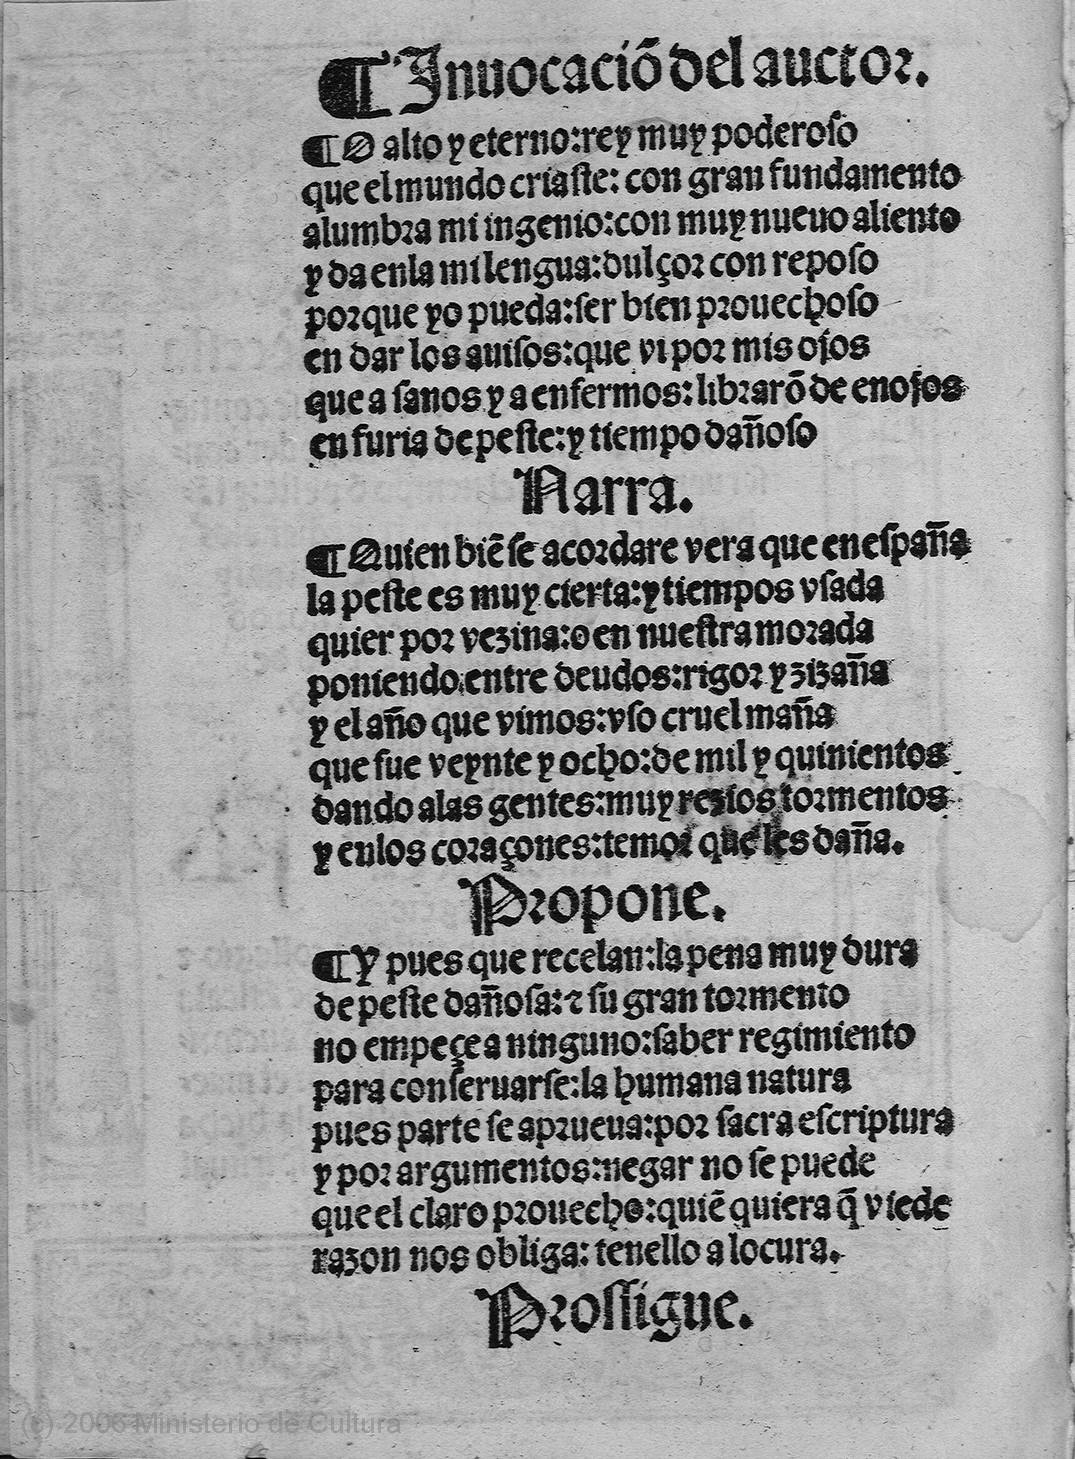 ¶ Inuocaciõ del auctor.
¶ O alto y eterno: rey muy poderoso
que el mundo criaste: con gran fundamento
alumbra mi ingenio: con muy nueuo aliento
y da enla mi lengua: dulçor con reposo
porque yo pueda: ser bien prouechoso
en dar los auisos: que vi por mis ojos
que a sanos y a enfermos: librarõ de enojos
en furia de peste: y tiempo dañoso
Narra.
¶ Quien biẽ se acordare vera que en españa
la peste es muy cierta: y tiempos vsada
quier por vezina: o en nuestra morada
poniendo entre deudos: rigor y zizaña
y el año que vimos: vso cruel maña
que fue veynte y ocho: de mil y quinientos
dando alas gentes: muy rezios tormentos
y enlos coraçones: temor que les daña.
Propone.
¶ Y pues que recelan: la pena muy dura
de peste dañosa: ⁊ su gran tormento
no empeçe a ninguno: saber regimiento
para conseruarse: la humana natura
pues parte se aprueua: por sacra escriptura
y por argumentos: negar no se puede
que el claro prouecho: quiẽ quiera q̃ viede
razon nos obliga: tenello a locura.
Prossigue.
(c) 2006 Ministerio de Cultura